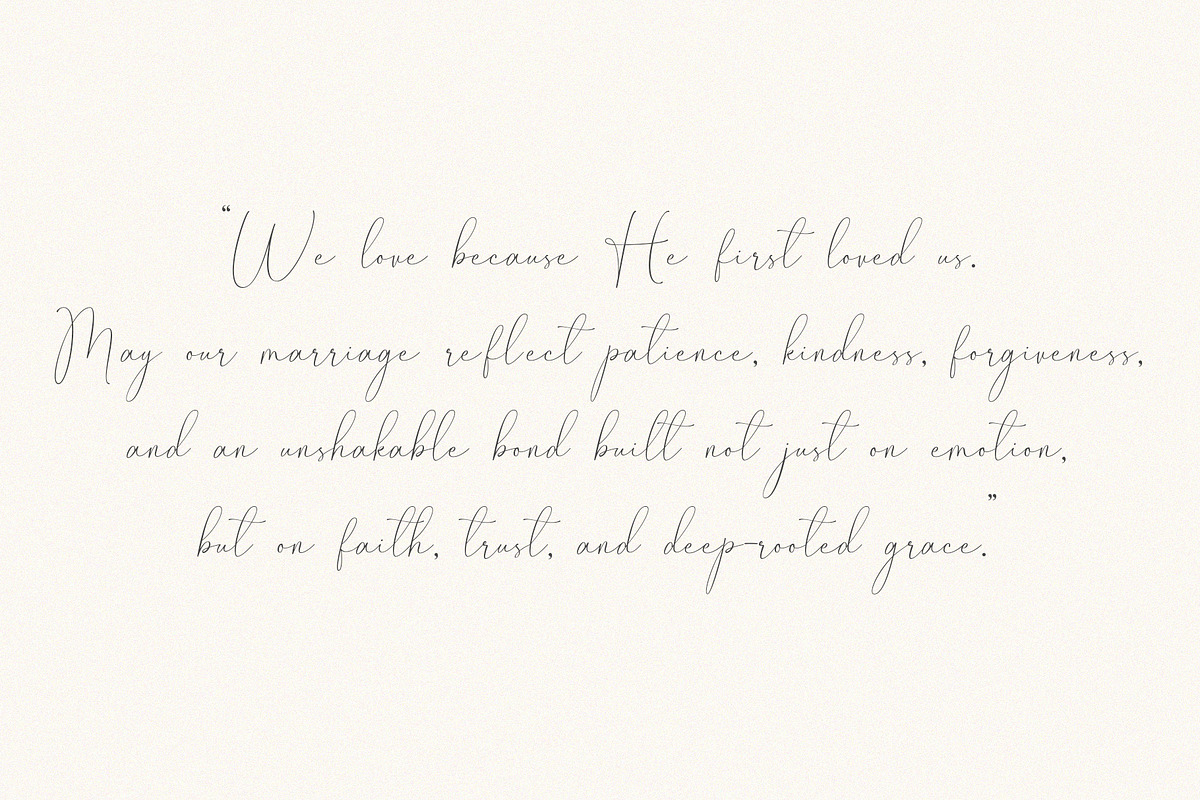 “We love because He first loved us.
May our marriage reflect patience, kindness, forgiveness,
and an unshakable bond built not just on emotion,
but on faith, trust, and deep-rooted grace.”